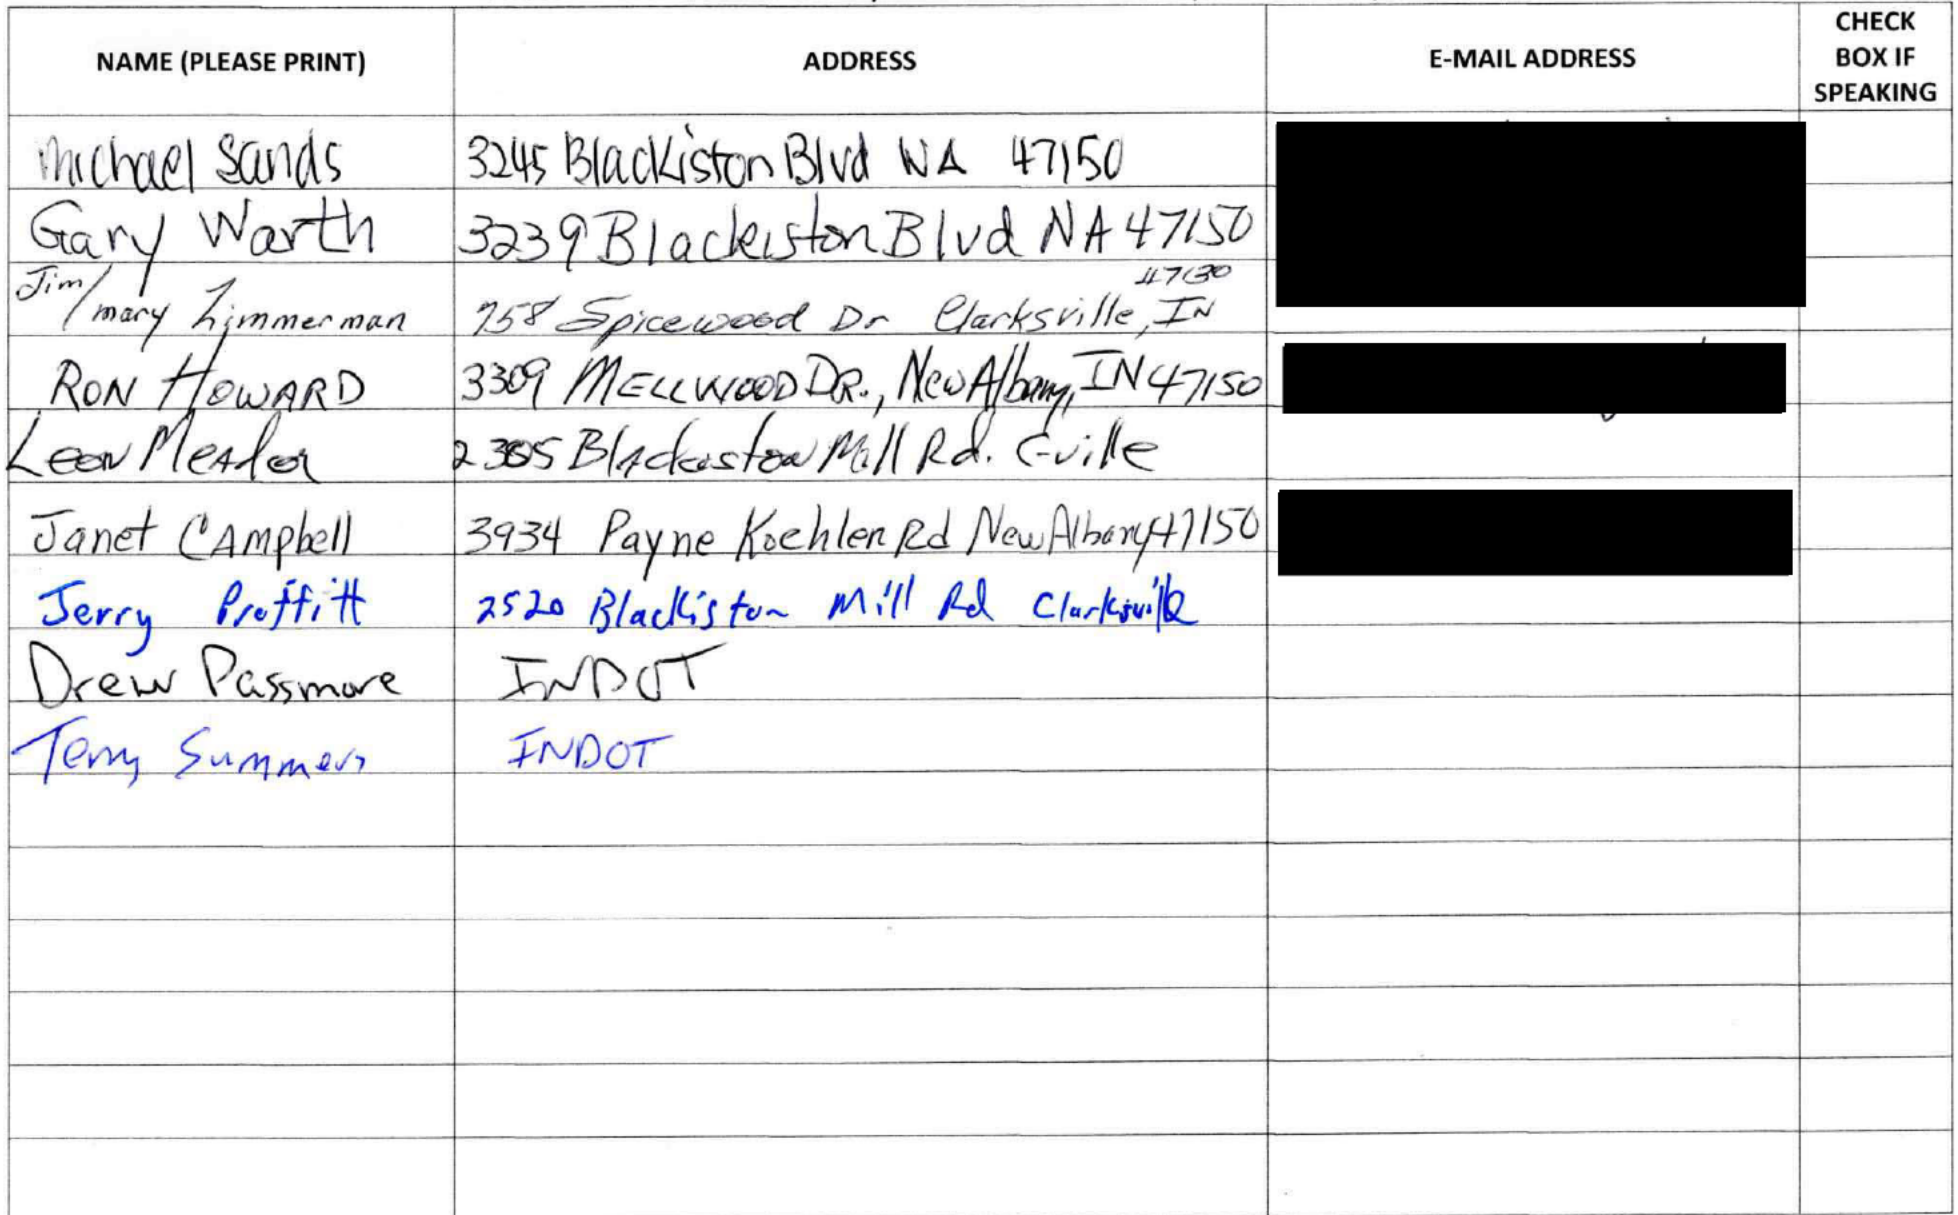 NAME (PLEASE PRINT) ADDRESS E-MAIL ADDRESS CHECK BOX IF SPEAKING
Michael Sands 3245 Blackiston Blvd NA 47150
Gary Warth 3239 Blackiston Blvd NA 47150
Jim/Mary Zimmerman 758 Spicewood Dr Clarksville, IN 47130
RON HOWARD 3309 MELLWOOD DR., New Albany, IN 47150
Leon Meador 2305 Blackiston Mill Rd. C-ville
Janet CAmpbell 3934 Payne Koehler Rd New Albany 47150
Jerry Proffitt 2520 Blackiston Mill Rd Clarksville
Drew Passmore INDOT
Terry Summers INDOT